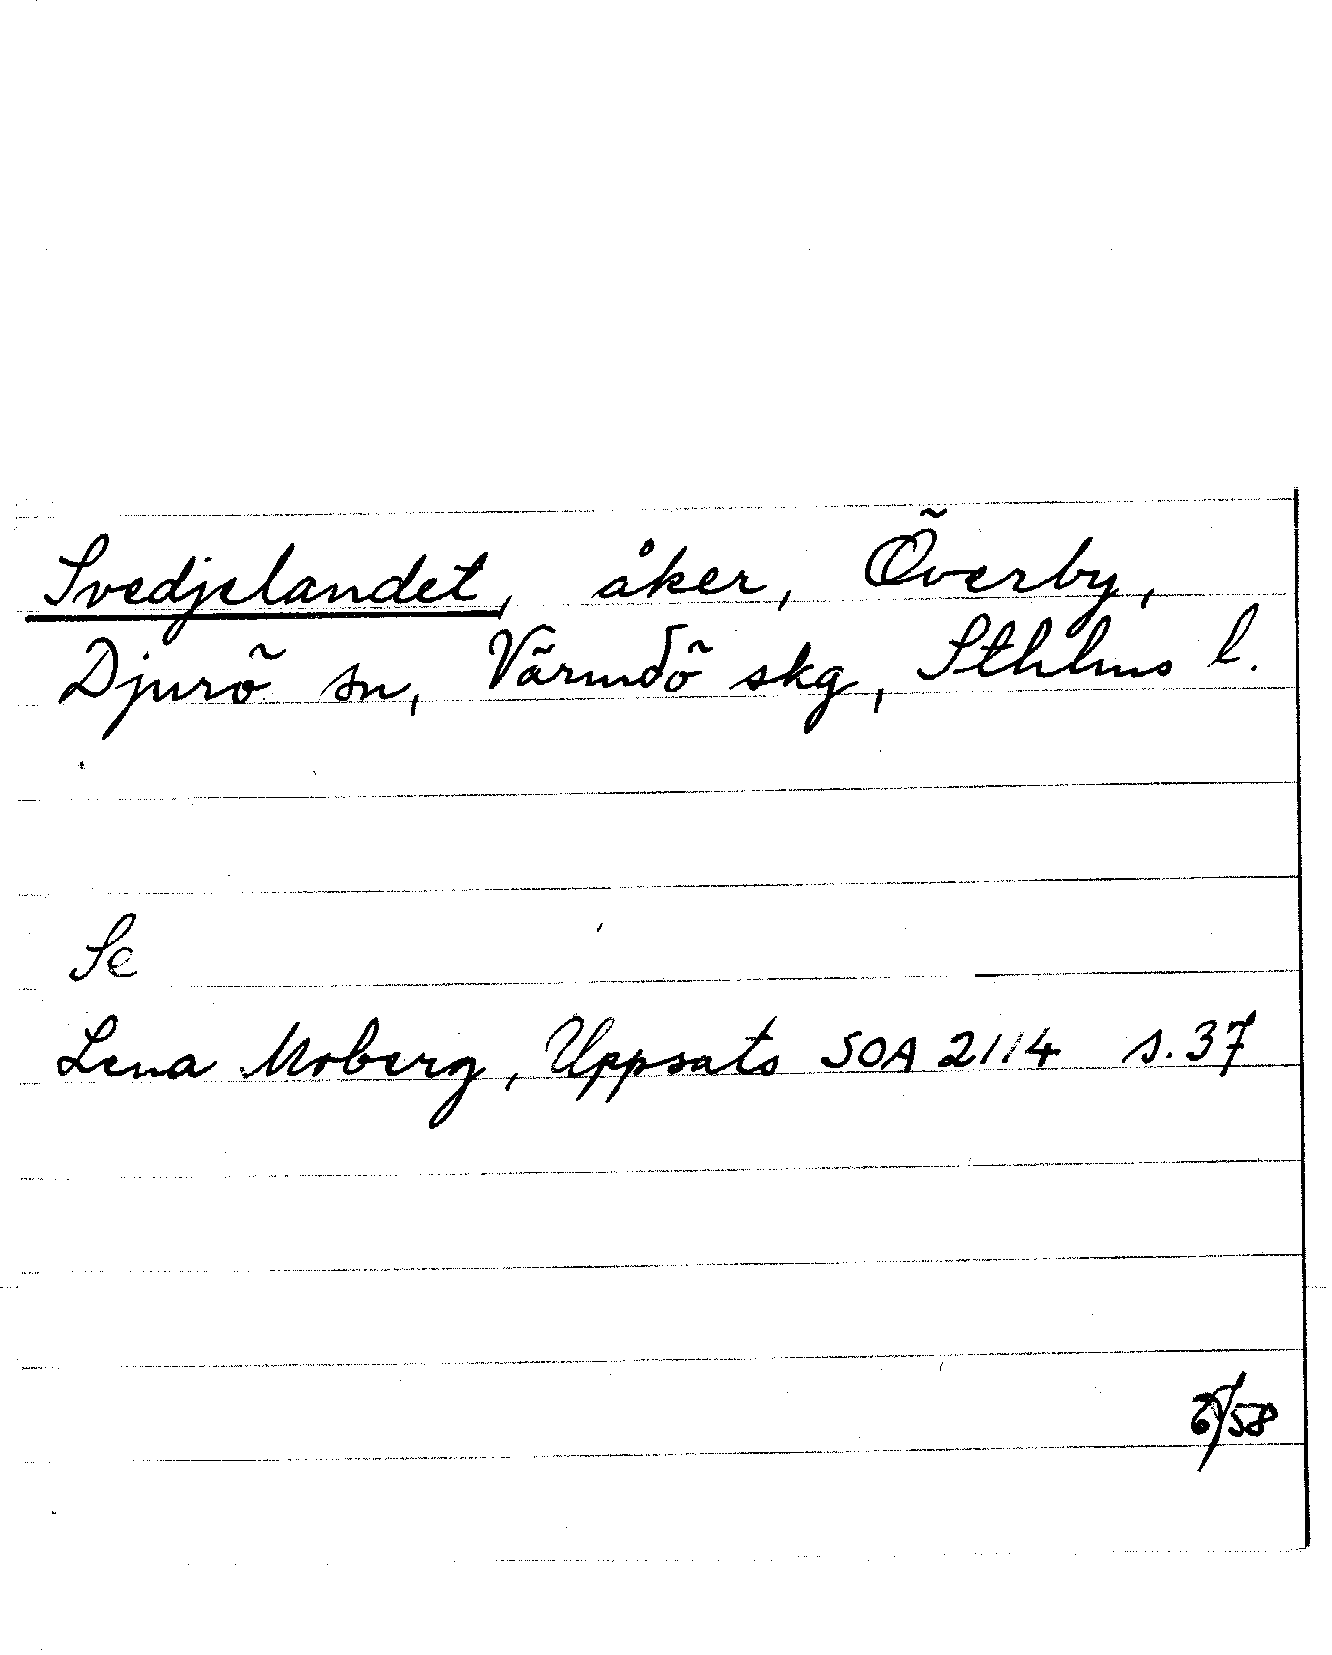 Svedjelandet, åker, Överby,
Djurö sn, Värmdö skg, Sthlms l.
Se
Lena Moberg, Uppsats SOA 2114 s. 37